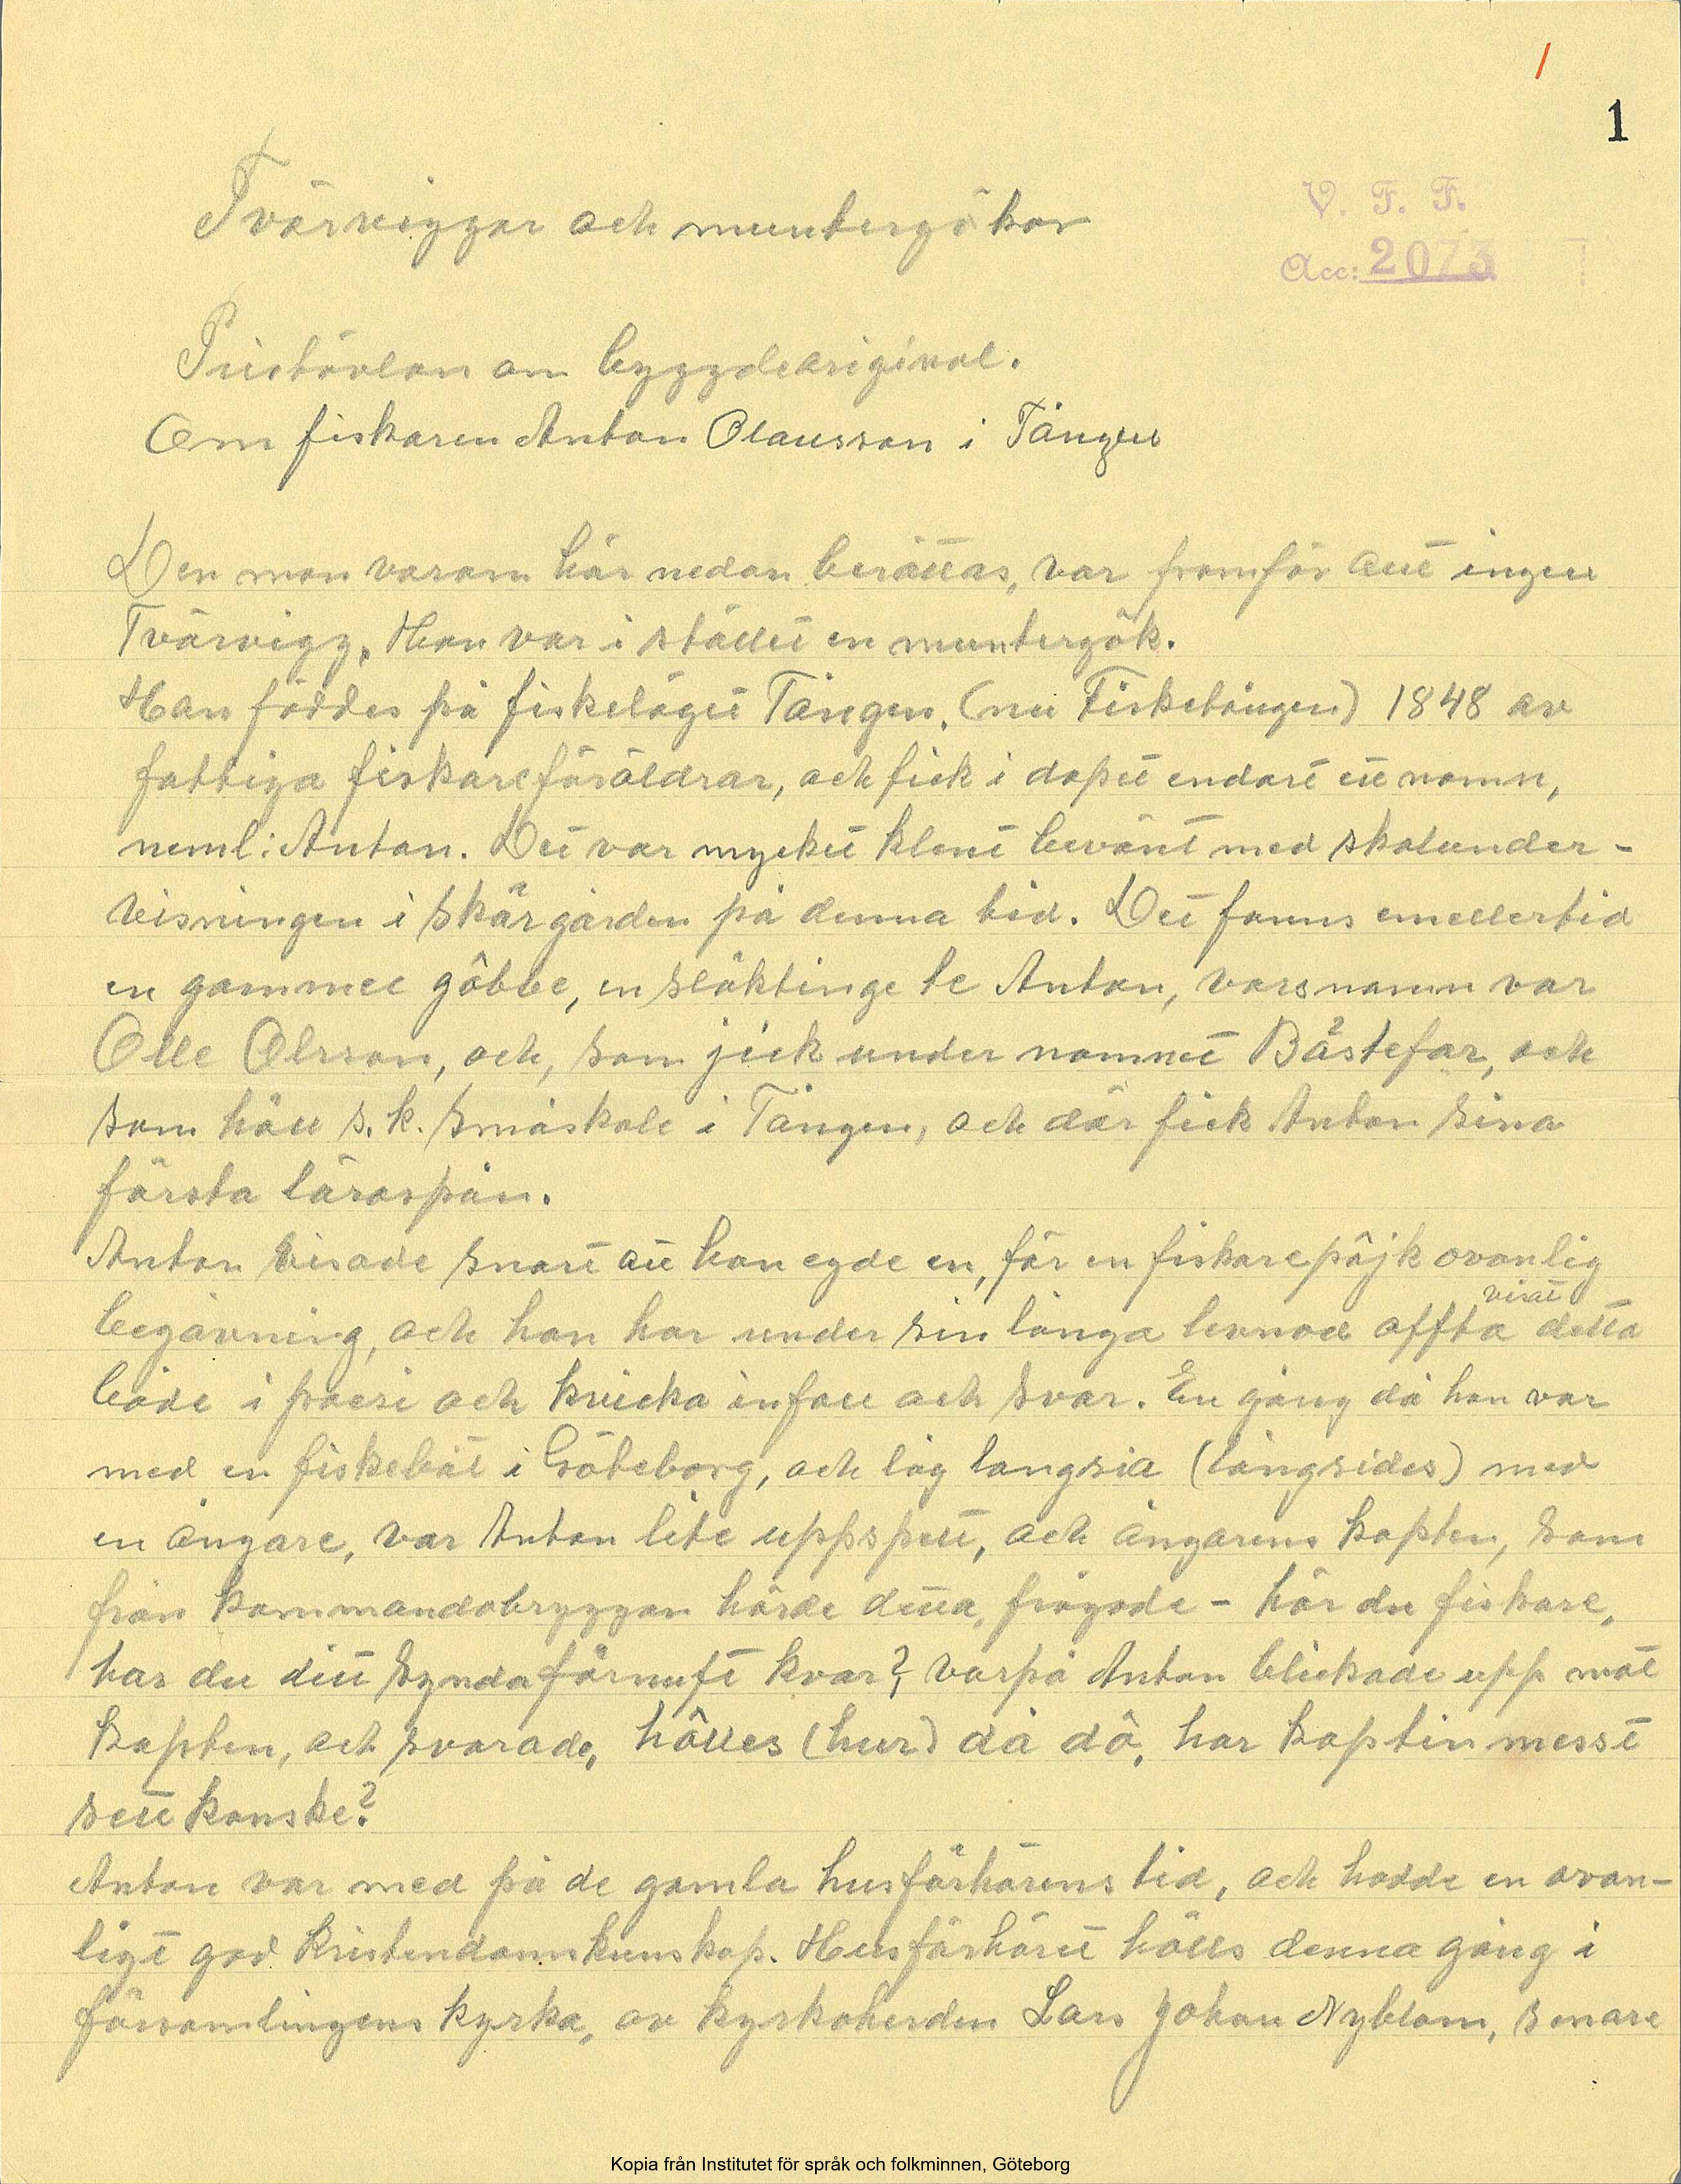 1
V. F. F.
Acc: 2073
Tvärviggar och muntergökar
Pristävlan om bygdeoriginal.
Om fiskaren Anton Olausson i Tången
Den man varom här nedan berättas, var framför allt ingen
Tvärvigg, Han var i stället en muntergök.
Han föddes på fiskeläget Tången, (nu Fisketången) 1848 av
fattiga fiskareföräldrar, och fick i dopet endast ett namn,
neml: Anton. Det var mycket klent bevänt med skolunder-
visningen i skärgården på denna tid. Det fanns emellertid
en gammel gôbbe, en släktinge te Anton, vars namn var
Olle Olsson, och, som jick under namnet Båstefar, och
som höll s.k. småskole i Tången, och där fick Anton sina
första lärospån.
Anton visade snart att han egde en, för en fiskarepôjk ovanlig
begåvning, och han har under sin långa levnad offta visat detta
både i poesi och kvicka infall och svar. En gång då han var
med en fiskebåt i Göteborg, och låg langsia (långsides) med
en ångare, var Anton lite uppspelt, och ångarens kapten, som
från kommandobryggan hörde detta, frågade - hör du fiskare,
har du ditt syndaförnuft kvar?, varpå Anton blickade upp mot
kapten, och svarade, hôlles (hur) då dô, har kaptin messt
sett kanske?
Anton var med på de gamla husförhörens tid, och hadde en ovan-
ligt god kristendomskunskap. Husförhöret hölls denna gång i
församlingens kyrka, av kyrkoherden Lars Johan Nyblom, senare
Kopia från Institutet för språk och folkminnen, Göteborg